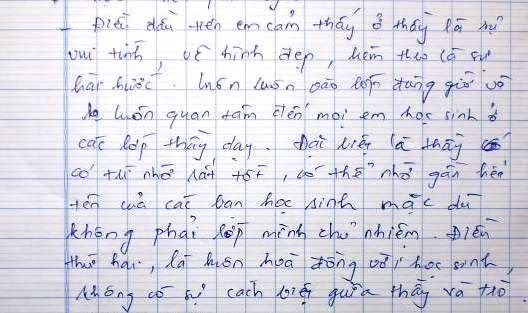 - Điều đầu tiên em cảm thấy ở thầy là sự
vui tính, vẻ hình đẹp, kèm theo là sự
hài hước. Luôn luôn vào lớp đúng giờ và
luôn quan tâm đến mọi em học sinh ở
các lớp thầy dạy. Đặc biệt là thầy
có trí nhớ rất tốt, có thể nhớ gần hết
tên của các bạn học sinh mặc dù
không phải lớp mình chủ nhiệm. Điều
thứ hai, là luôn hoà đồng với học sinh,
không có sự cách biệt giữa thầy và trò.